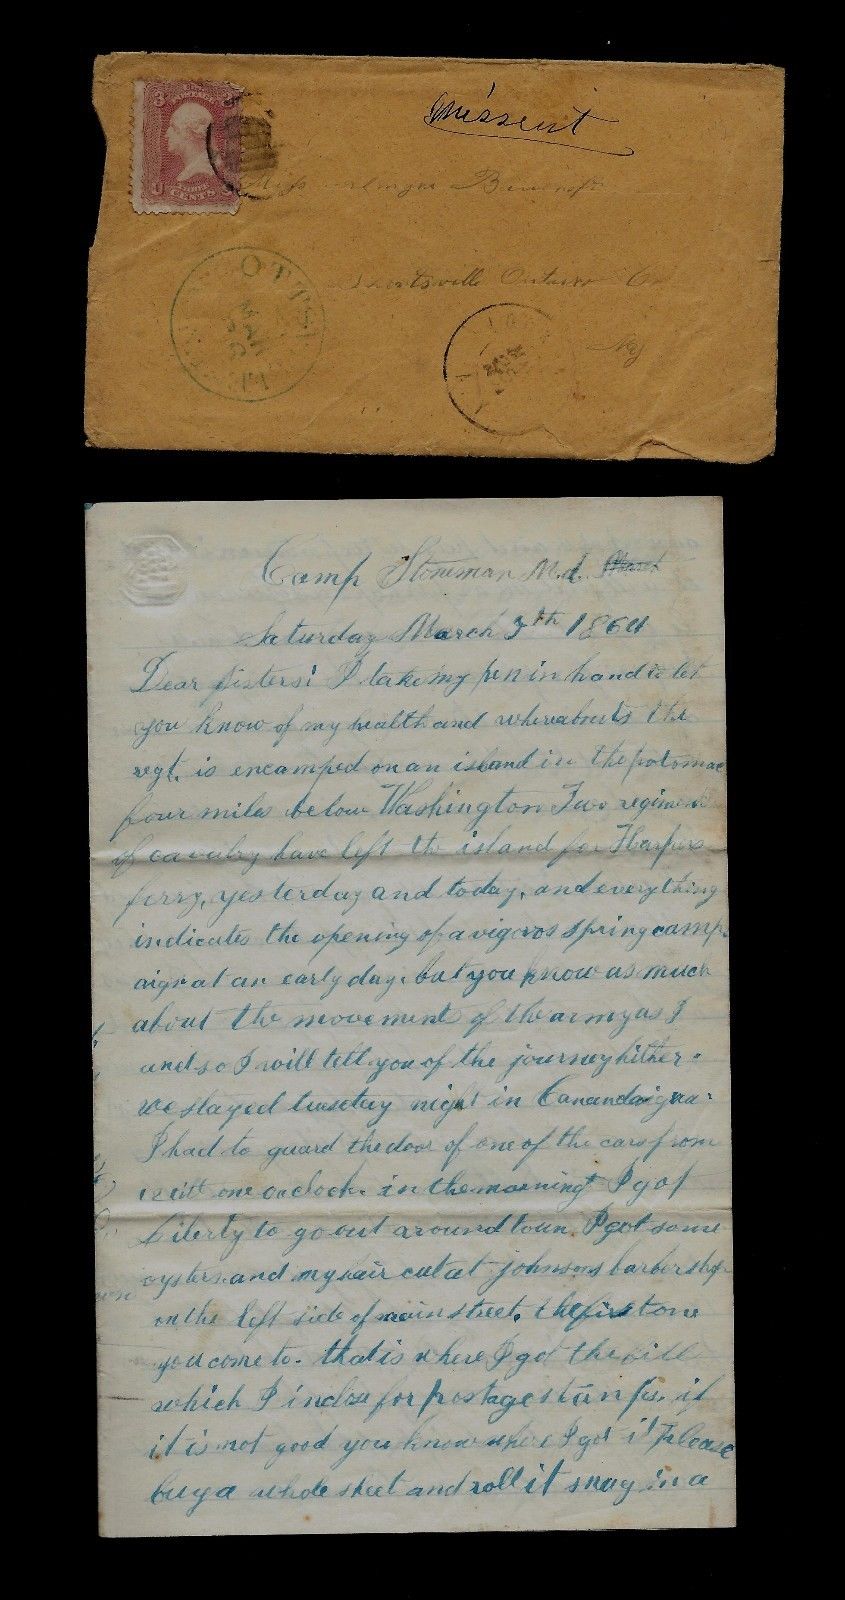 3 3
U.S. POSTAGE
THREE CENTS
Missent
Miss Bancroft
Shortsville Ontario Co
NY
OTT
MAR
Camp Stoneman Md. March
Saturday March 5th 1864
Dear Sisters; I take my pen in hand to let
you know of my health and whereabouts the
regt. is encamped on an island in the potomac
four miles below Washington Two regiments
of cavalry have left the island for Harpers
ferry, yesterday and today, and everything
indicates the opening of a vigoros spring camp
aign at an early day. but you know as much
about the movement of the army as I
and so I will tell you of the journey hither.
we stayed tuesday night in Canandaigua.
I had to guard the door of one of the cars from
12 till one oclock. in the morning I got
Liberty to go out around town. I got some
oysters and my hair cut at johnsons barbershop
on the left side of main street, the first one
you come to. that is where I got the bill
which I inclose for postage stamps. if
it is not good you know where I got it Please
buy a whole sheet and roll it snug in a